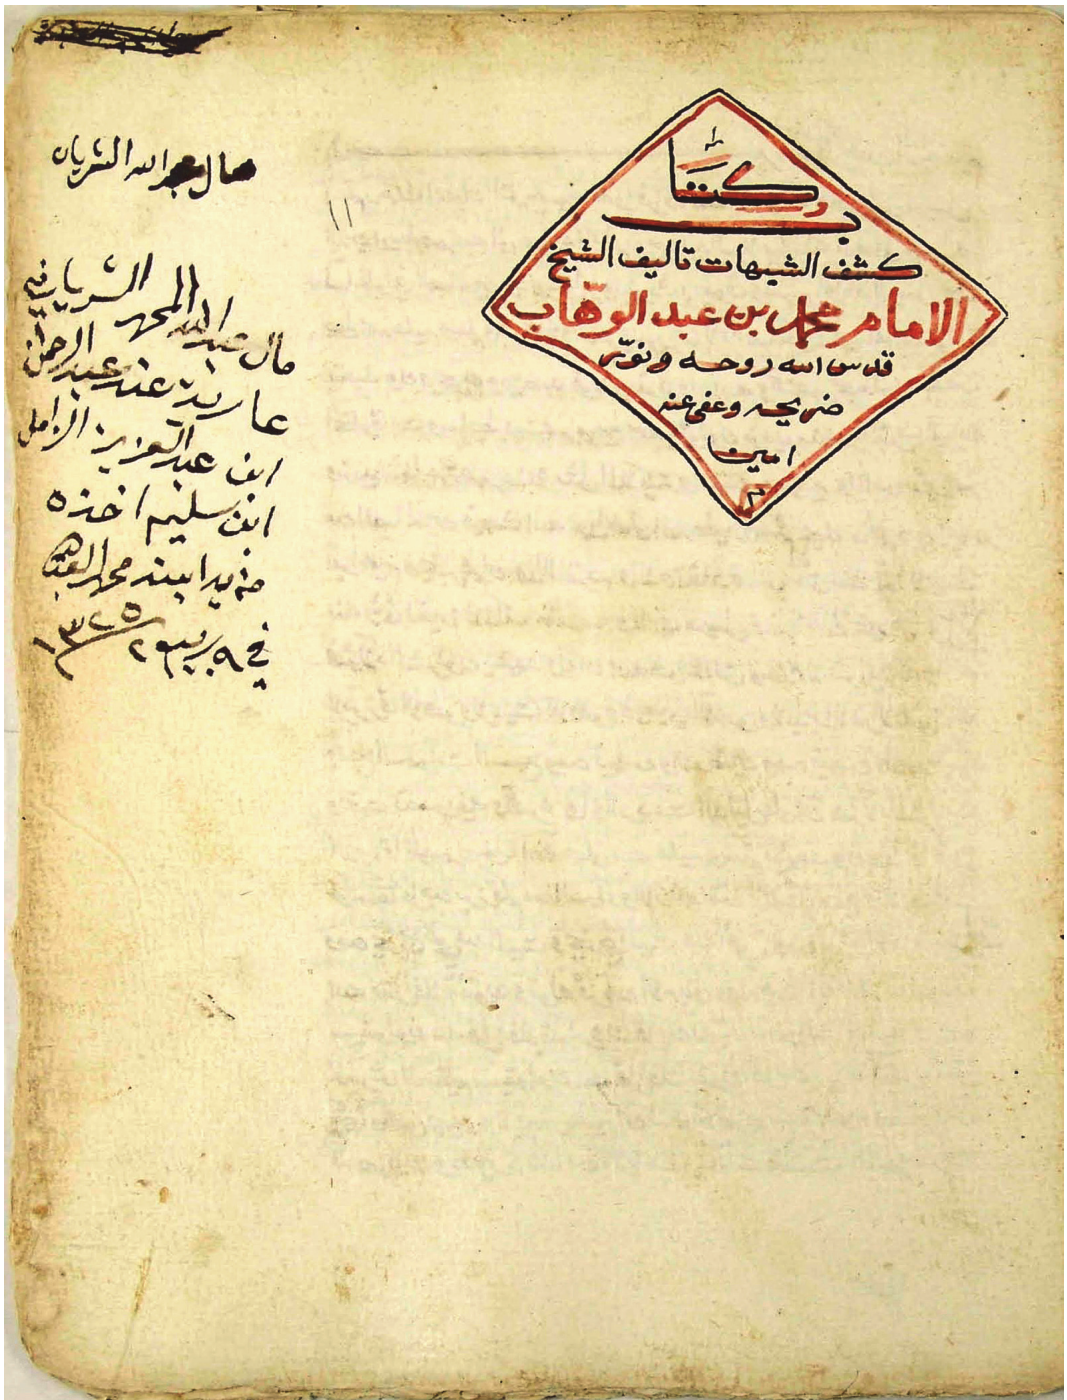 كتاب
كشف الشبهات تاليف الشيخ
الامام محمد بن عبد الوهاب
قدس الله روحه ونوّر
ضريحه وعفى عنه
امين
م
١١
مال عبدالله الشريان
مال عبدالله المحمد الشريان
عارية عند عبد الرحمن
ابن عبد العزيز الزامل
ابن سليم اخذه
من يد ابينه محمد
في ٩ ٢ ١٣٢٥